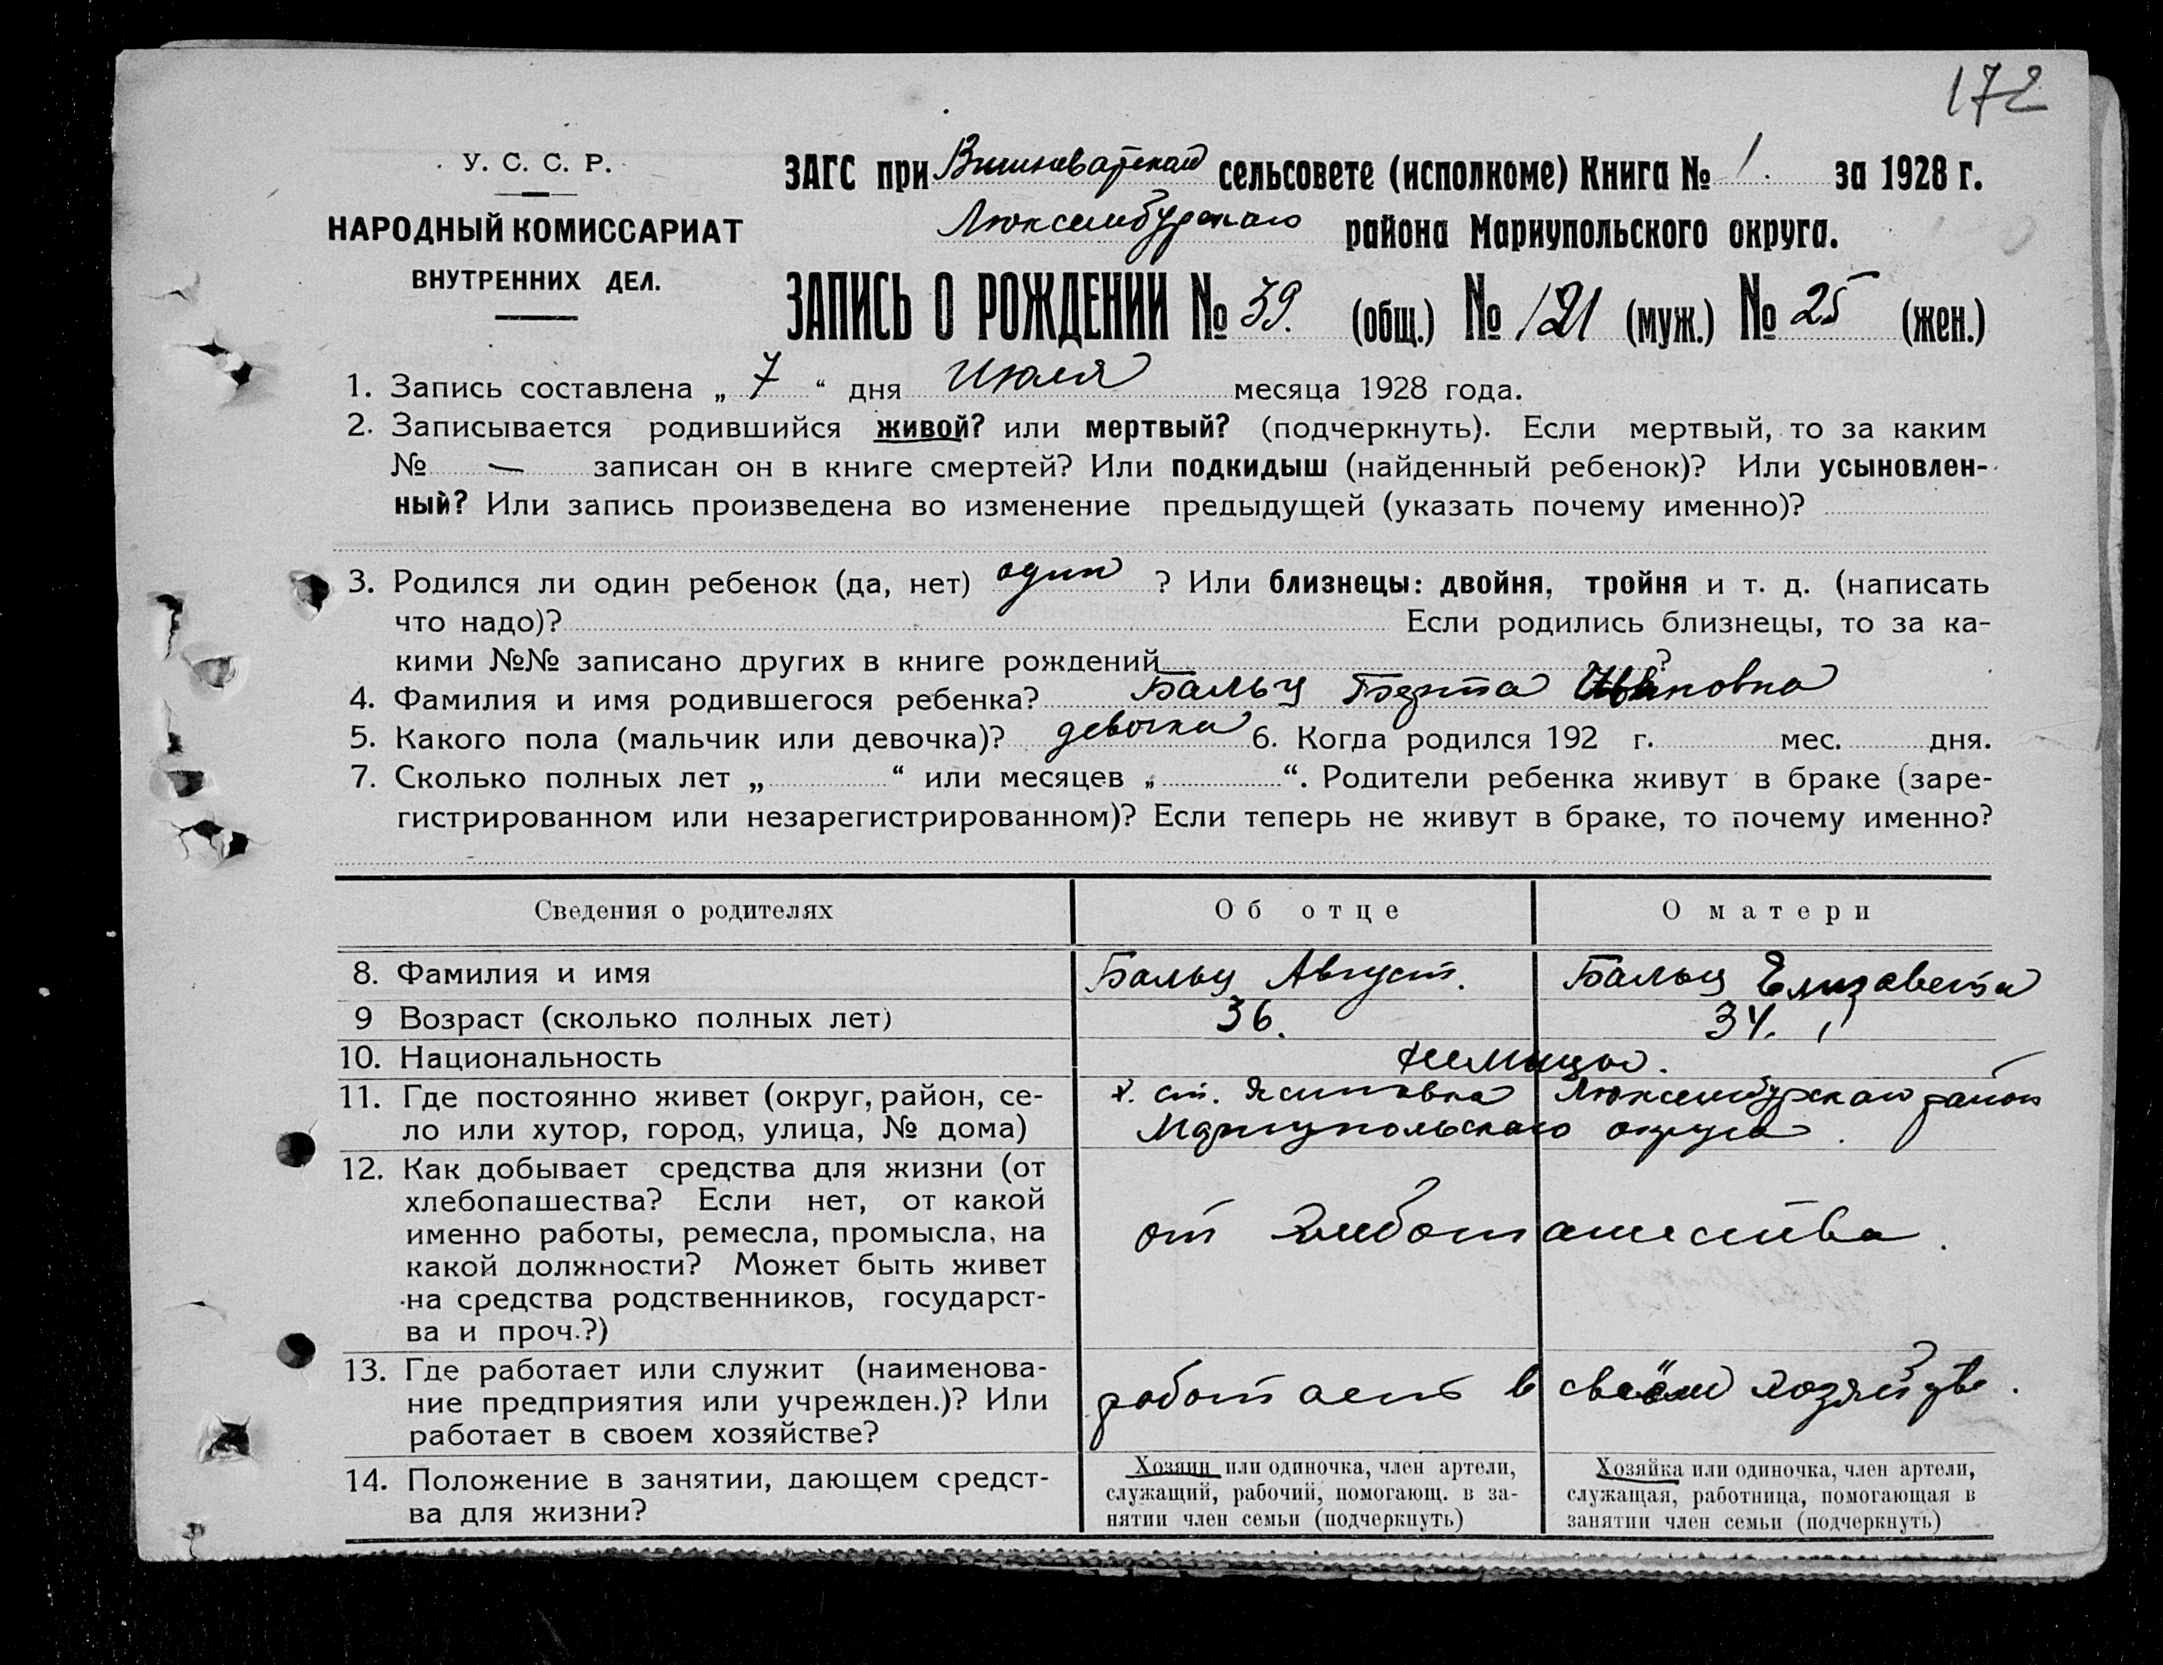 172
У. С. С. Р.
НАРОДНЫЙ КОМИССАРИАТ
ВНУТРЕННИХ ДЕЛ.
ЗАГС при сельсовете (исполкоме) Книга № 1. за 1928 г.
Люксембургского района Мариупольского округа.
ЗАПИСЬ О РОЖДЕНИИ № 39. (общ.) № 121 (муж.) № 25 (жен.)
1. Запись составлена „ 7 “ дня Июля месяца 1928 года.
2. Записывается родившийся живой? или мертвый? (подчеркнуть). Если мертвый, то за каким
№ — записан он в книге смертей? Или подкидыш (найденный ребенок)? Или усыновлен-
ный? Или запись произведена во изменение предыдущей (указать почему именно)?
3. Родился ли один ребенок (да, нет) один ? Или близнецы: двойня, тройня и т. д. (написать
что надо)? Если родились близнецы, то за ка-
кими №№ записано других в книге рождений ?
4. Фамилия и имя родившегося ребенка? Бальц Берта
5. Какого пола (мальчик или девочка)? девочка 6. Когда родился 192 г. мес. дня.
7. Сколько полных лет „ “ или месяцев „ “. Родители ребенка живут в браке (заре-
гистрированном или незарегистрированном)? Если теперь не живут в браке, то почему именно?
Сведения о родителях Об отце О матери
8. Фамилия и имя Бальц Август. Бальц Елизавета
9 Возраст (сколько полных лет) 36. 34.
10. Национальность немицы.
11. Где постоянно живет (округ, район, се-
ло или хутор, город, улица, № дома)
х. ст. Ясиновка Люксембургского район
Мариупольского округа.
12. Как добывает средства для жизни (от
хлебопашества? Если нет, от какой
именно работы, ремесла, промысла, на
какой должности? Может быть живет
на средства родственников, государст-
ва и проч.?)
от хлебопашества.
13. Где работает или служит (наименова-
ние предприятия или учрежден.)? Или
работает в своем хозяйстве?
работает в своём хозяйстве.
14. Положение в занятии, дающем средст-
ва для жизни?
Хозяин или одиночка, член артели,
служащий, рабочий, помогающ. в за-
нятии член семьи (подчеркнуть)
Хозяйка или одиночка, член артели,
служащая, работница, помогающая в
занятии член семьи (подчеркнуть)